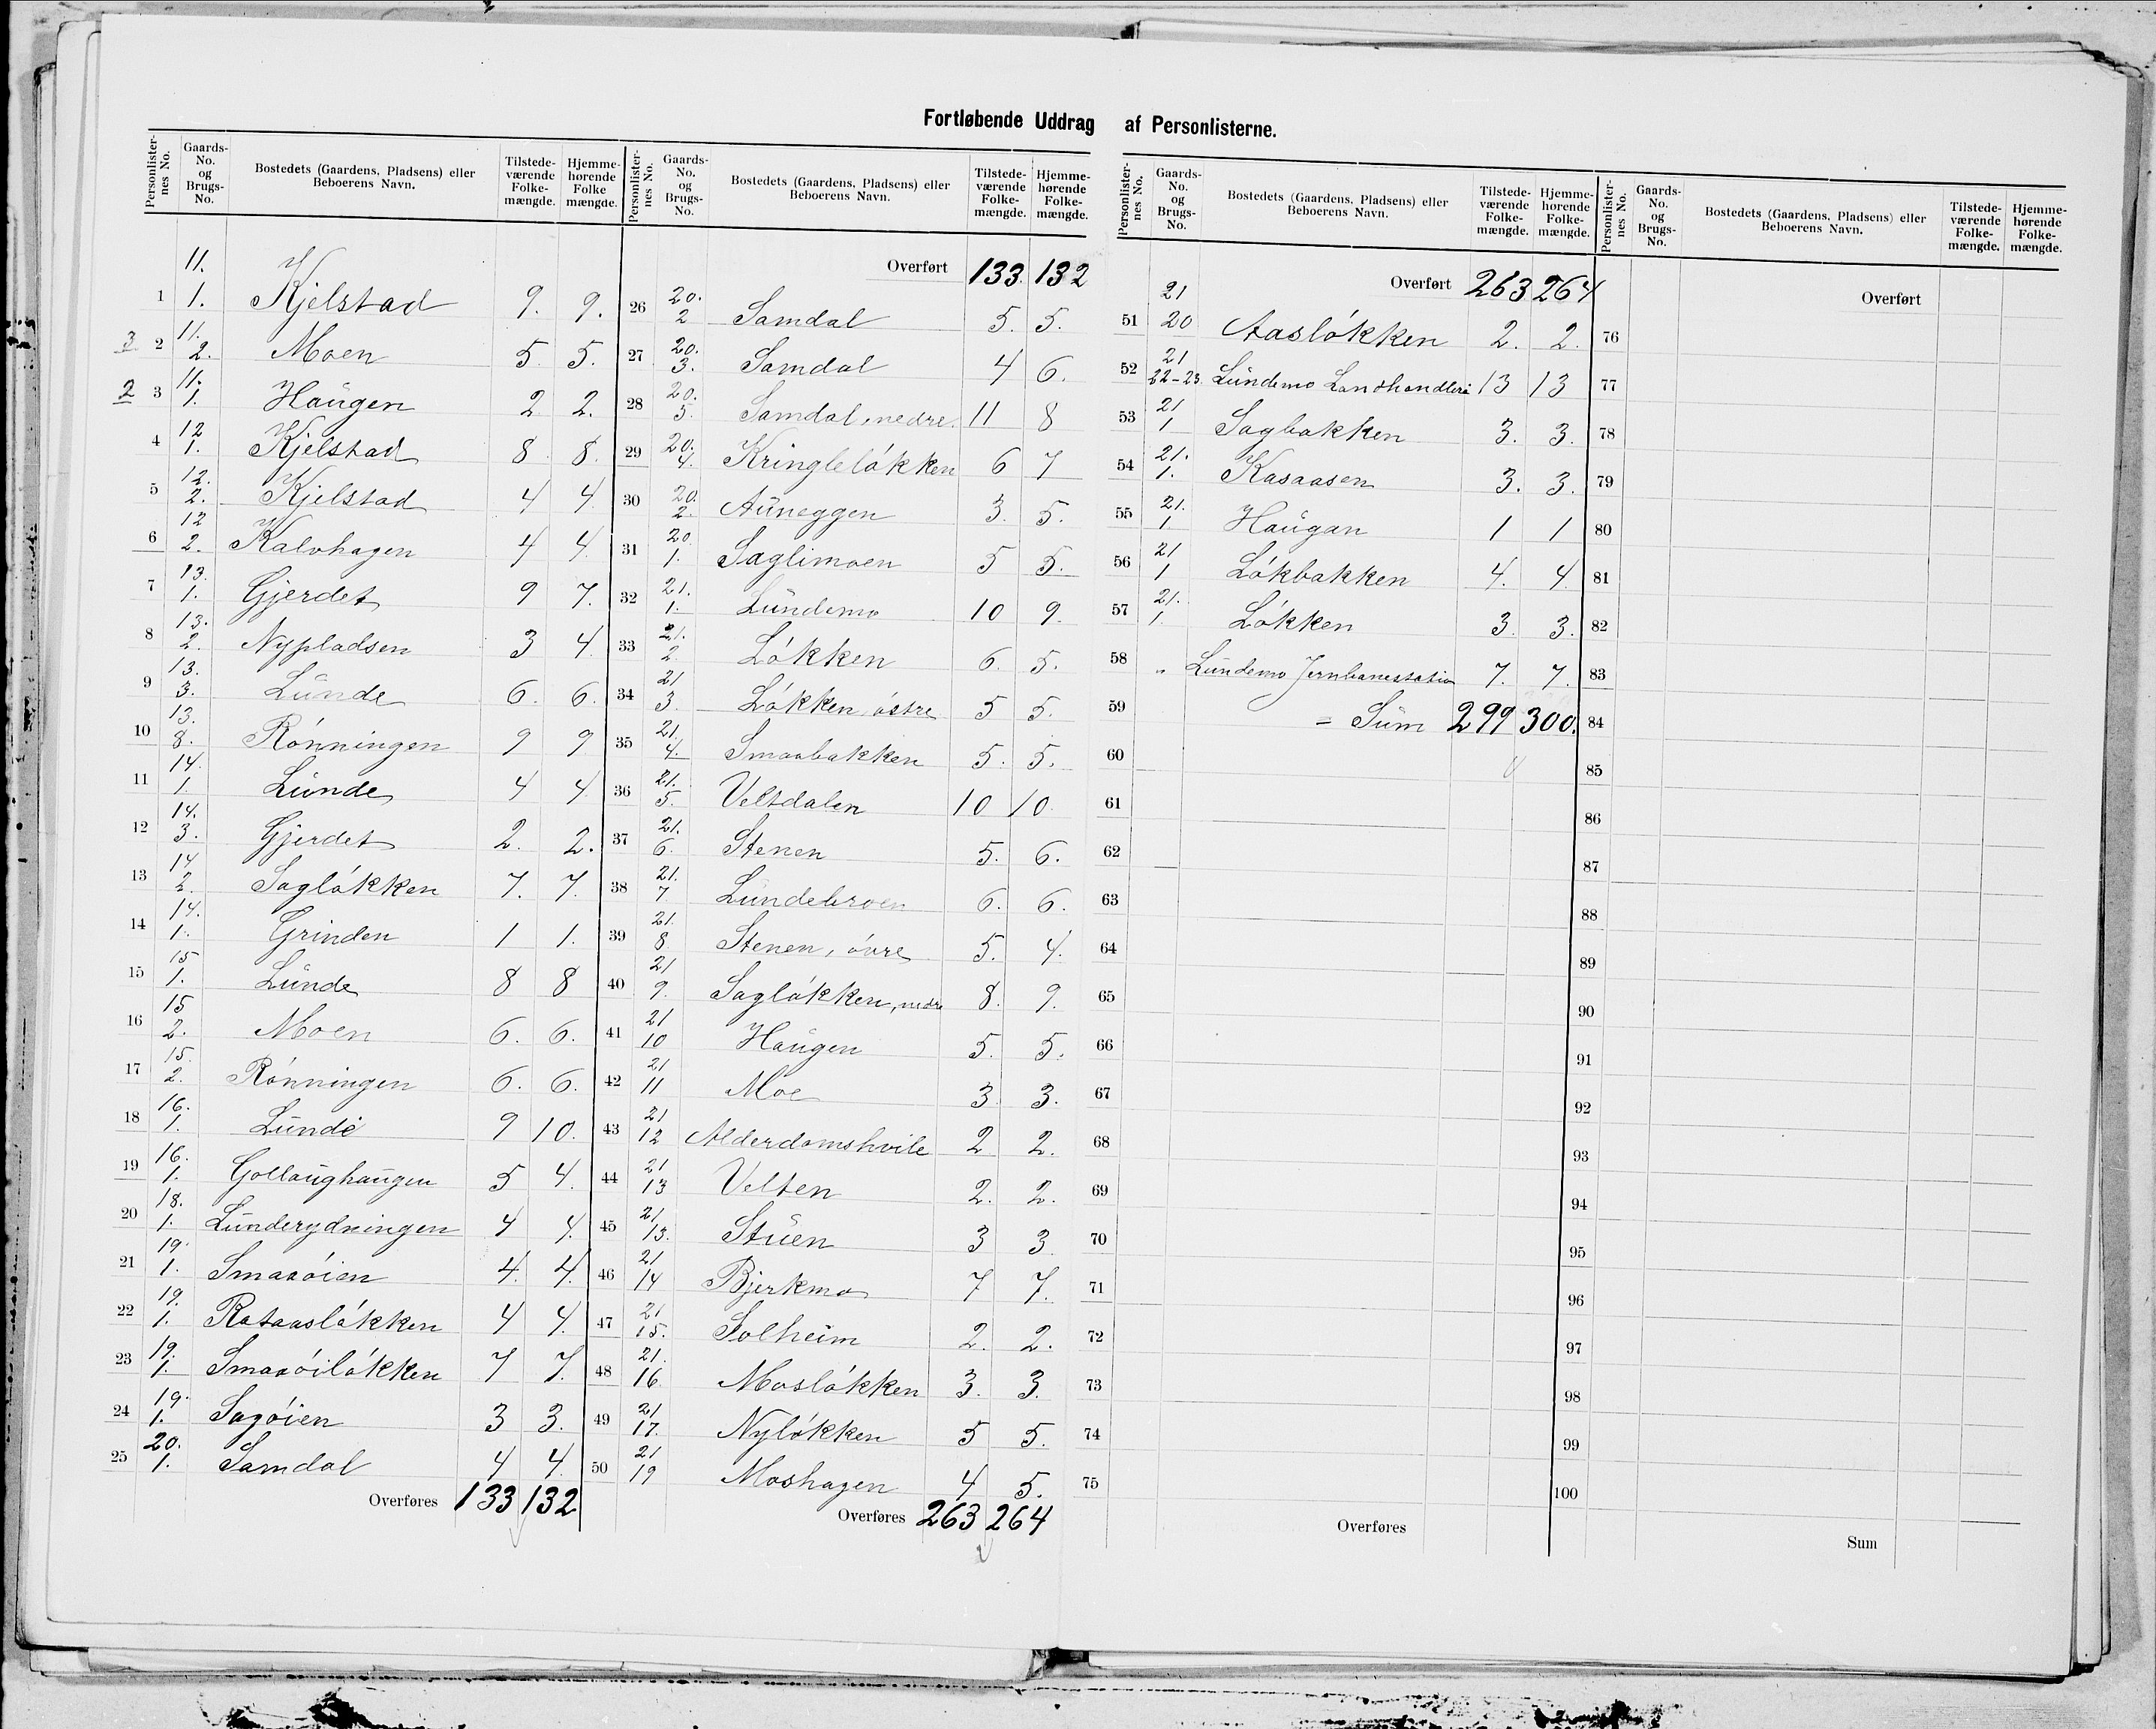 Fortløbende Uddrag af Personlisterne.
Personlisternes No. Gaards-No. og Brugs-No. Bostedets (Gaardens, Pladsens) eller Beboerens Navn. Tilstedeværende Folkemængde. Hjemmehørende Folkemængde.
1 11. 1. Kjelstad 9. 9.
3. 2 11. 2. Moen 5 5.
2 3 11. 1. Haugen 2 2.
4 12 1. Kjelstad 8. 8.
5 12. 2. Kjelstad 4 4
6 12 2. Kalvhagen 4 4.
7 13. 1. Gjerdet 9 7.
8 13. 2. Nypladsen 3 4.
9 13. 3. Lunde 6. 6.
10 13. 8. Rónningen 9 9
11 14. 1. Lunde 4 4
12 14. 3. Gjerdet 2. 2.
13 14 2. Saglókken 7. 7.
14 14. 1. Grinden 1 1.
15 15 1. Lunde 8 8
16 15 2. Moen 6. 6.
17 15. 2. Rónningen 6. 6.
18 16. 1. Lunde 9 10.
19 16. 1. Gollaughaugen 5 4.
20 18. 1. Lunderydningen 4 4.
21 19. 1. Smaaóien 4. 4.
22 19. 1. Rataaslókken 4 4.
23 19. 1. Smaaóilókken 7 7.
24 19. 1. Sagóien 3 3.
25 20. 1. Samdal 4 4.
Overføres 133 132
Personlisternes No. Gaards-No. og Brugs-No. Bostedets (Gaardens, Pladsens) eller Beboerens Navn. Tilstedeværende Folkemængde. Hjemmehørende Folkemængde.
Overført 133. 132
26 20. 2 Samdal 5. 5.
27 20. 3. Samdal 4 6.
28 20. 5. Samdal, nedre. 11 8
29 20. 4. Kringlelókken 6 7
30 20. 2. Auneggen 3. 5.
31 20 1. Saglimoen 5 5.
32 21. 1. Lundemo 10 9.
33 21. 2. Lókken 6. 5.
34 21 3. Lókken, óstre 5 5.
35 21. 4. Smaabakken 5. 5.
36 21. 5. Veltdalen 10 10.
37 21. 6. Stenen 5. 6.
38 21. 7 Lundebroen 6. 6.
39 21. 8. Stenen, óvre 5. 4.
40 21 9. Saglókken, nedre 8. 9.
41 21 10 Haugen 5. 5.
42 21 11 Moe 3. 3.
43 21 12 Alderdomshvile 2 2.
44 21 13 Velten 2. 2.
45 21 13. Stuen 3 3.
46 21 14 Bjerkmo 7 7.
47 21 15. Solheim 2. 2.
48 21. 16. Moslókken 3. 3.
49 21 17. Nylókken 5 5.
50 21 19 Moshagen 4 5.
Overføres 263 264
Personlisternes No. Gaards-No. og Brugs-No. Bostedets (Gaardens, Pladsens) eller Beboerens Navn. Tilstedeværende Folkemængde. Hjemmehørende Folkemængde.
Overført 263 264
51 21 20 Aaslókken 2. 2.
52 21 22-23. Lundemo Landhandleri 13 13
53 21 1 Sagbakken 3. 3.
54 21. 1. Kasaasen 3. 3.
55 21. 1 Haugan 1 1
56 21 1 Lókbakken 4. 4.
57 21. 1. Lókken 3. 3.
58 " Lundemo Jernbanestation 7. 7.
59 = Sum 299 300.
60
61
62
63
64
65
66
67
68
69
70
71
72
73
74
75
Overføres
Personlisternes No. Gaards-No. og Brugs-No. Bostedets (Gaardens, Pladsens) eller Beboerens Navn. Tilstedeværende Folkemængde. Hjemmehørende Folkemængde.
Overført
76
77
78
79
80
81
82
83
84
85
86
87
88
89
90
91
92
93
94
95
96
97
98
99
100
Sum